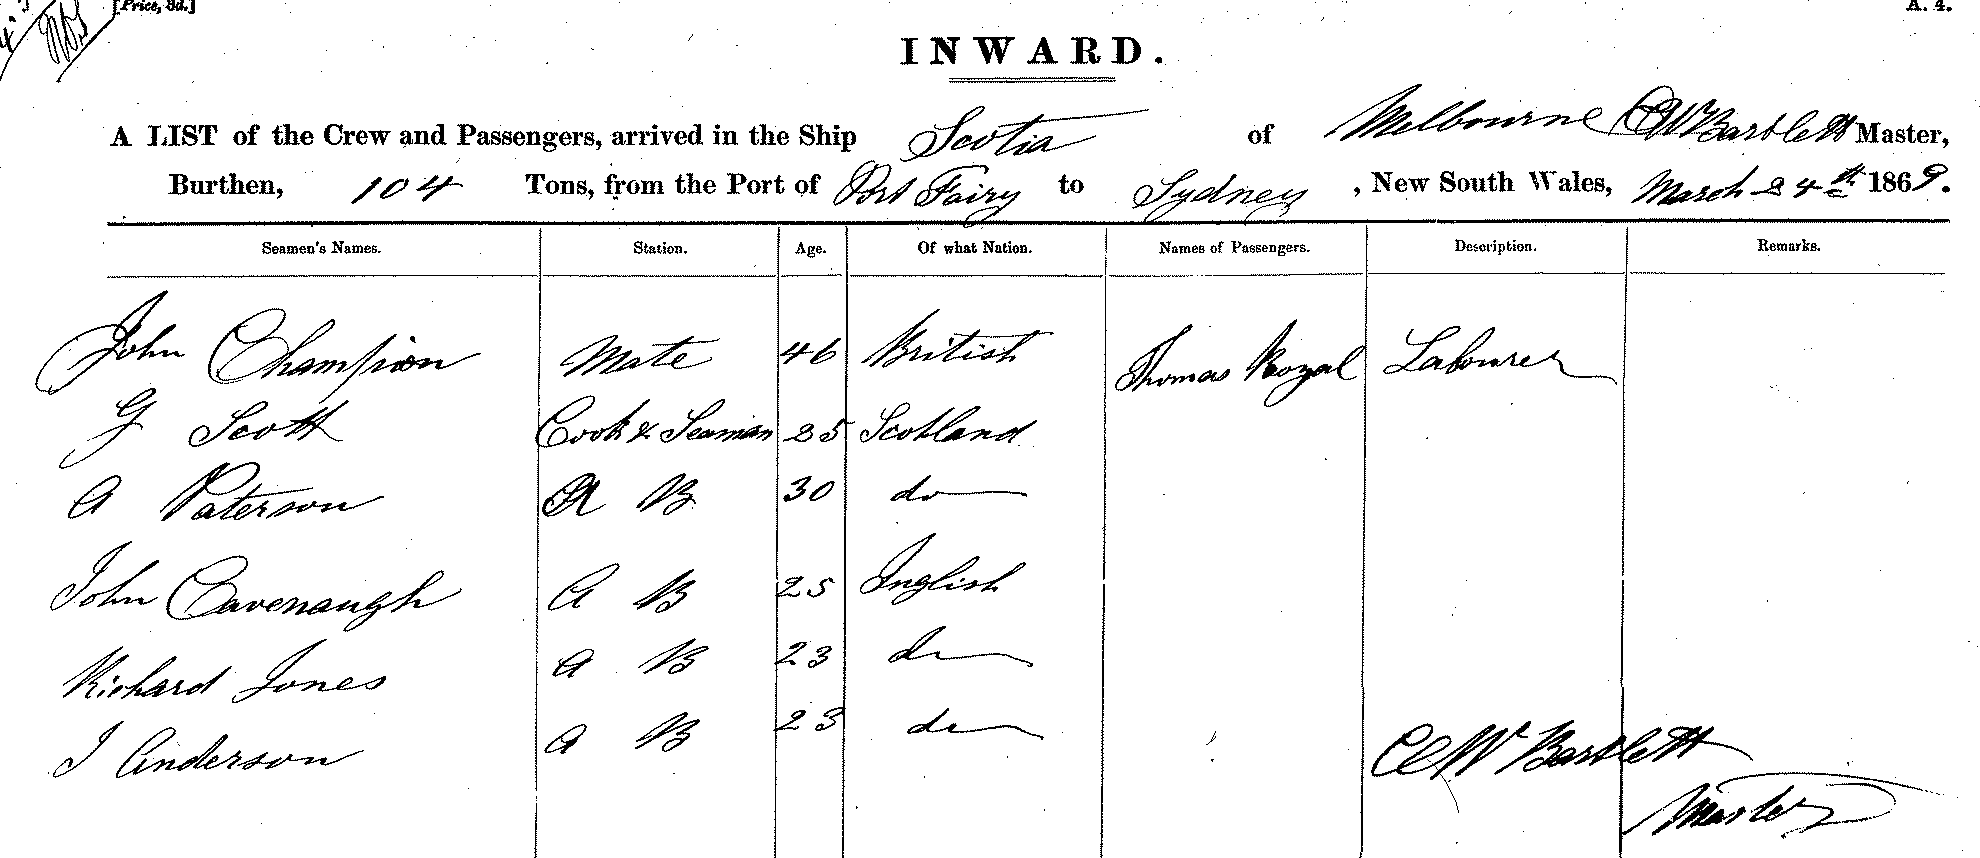 [Price, 3d.]
A. 4.
INWARD.
A LIST of the Crew and Passengers, arrived in the Ship Scotia of Melbourne CW Bartlett Master,
Burthen, 104 Tons, from the Port of Port Fairy to Sydney, New South Wales, March 24th 1869.
Seamen's Names. Station. Age. Of what Nation. Names of Passengers. Description. Remarks.
John Champion Mate 46 British Thomas Royal Labourer
G Scott Cook & Seaman 25 Scotland
A Paterson A B 30 do
John Cavenaugh A B 25 Inglish
Richard Jones A B 23 do
J Anderson A B 23 do
CW Bartlett
Master